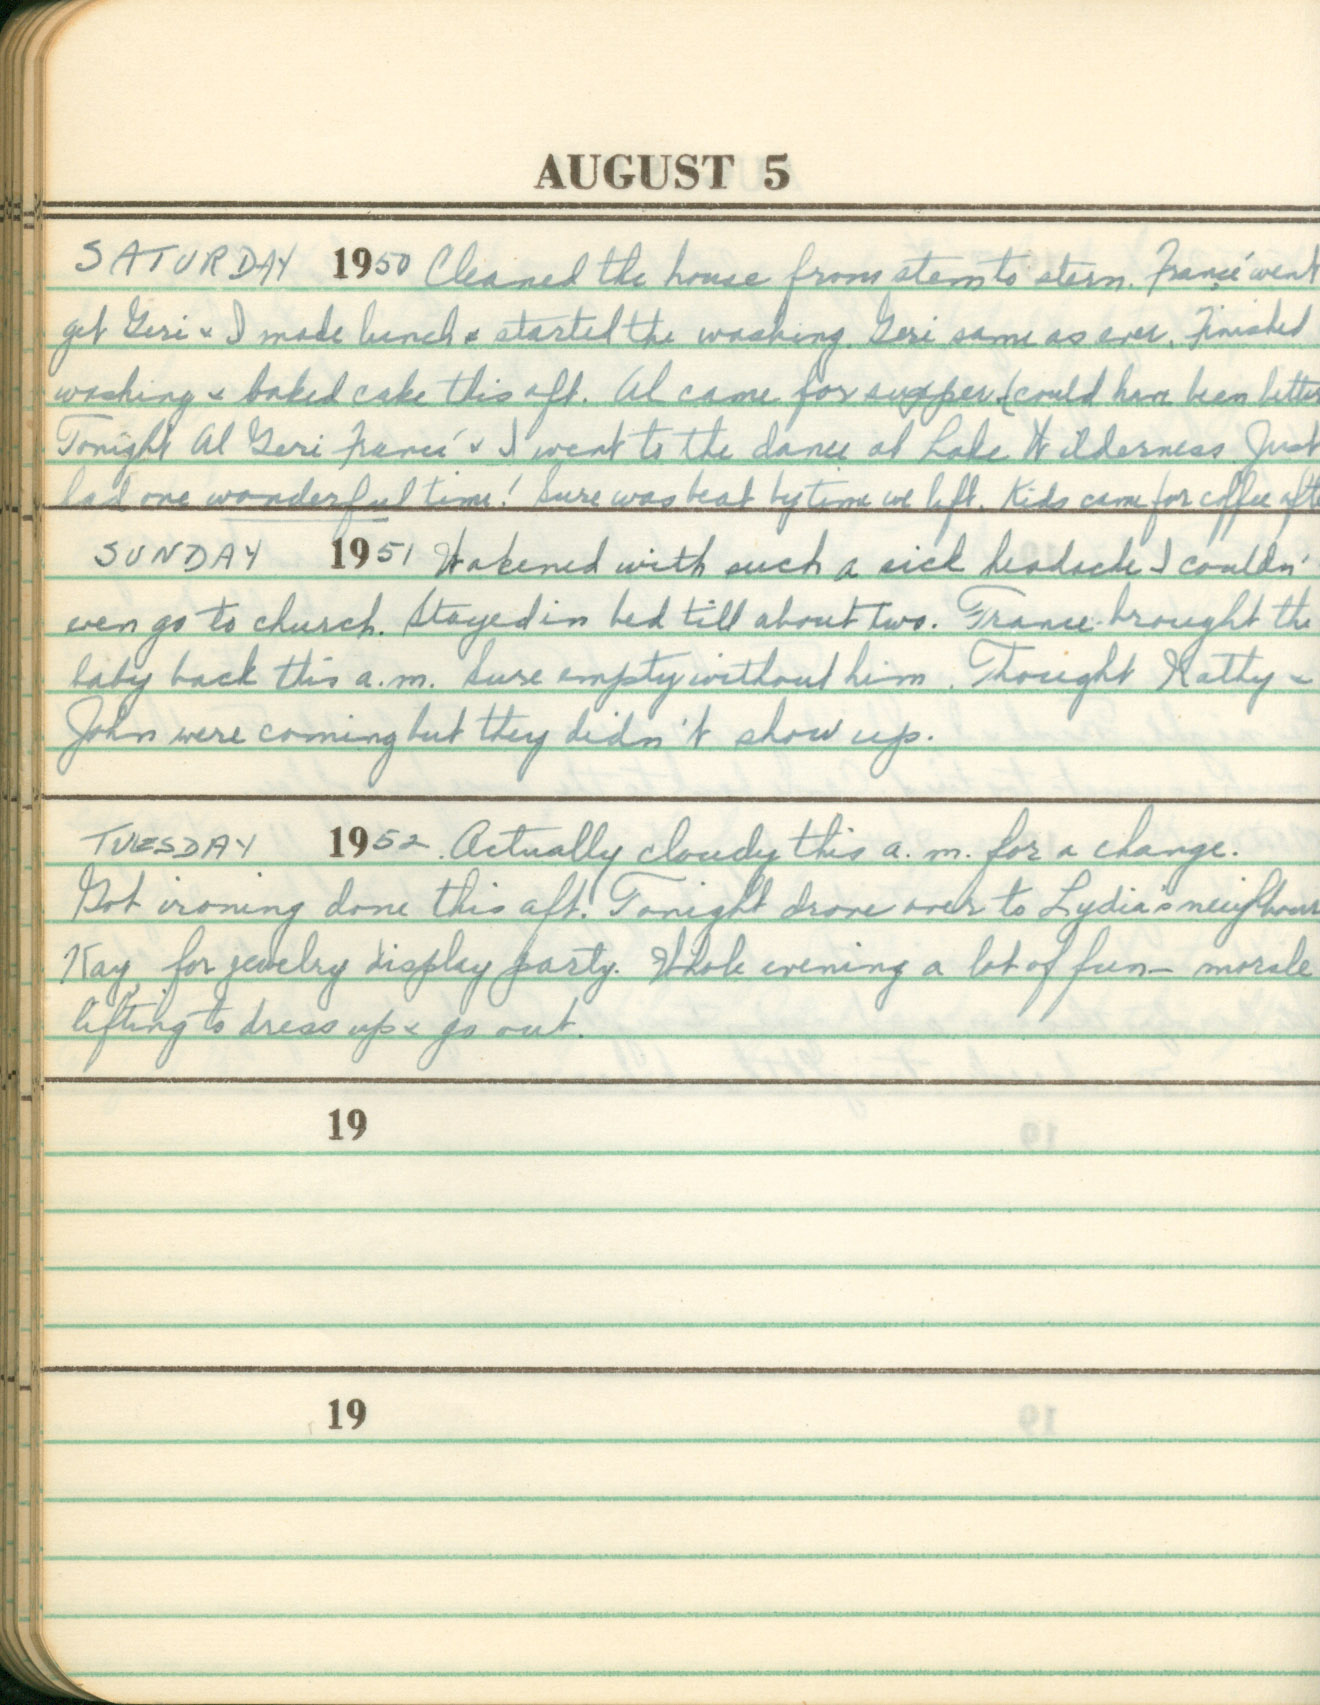 AUGUST 5
SATURDAY 1950 Cleaned the house from stem to stern. Francé went
get Geri & I made lunch & started the washing. Geri same as ever. Finished
washing & baked cake this aft. Al came for supper (could have been better
Tonight Al Geri Francé & I went to the dance at Lake Wilderness Just
had one wonderful time! Sure was beat by time we left. Kids came for coffee afte
SUNDAY 1951 Wakened with such a sick headache I couldn'
even go to church. Stayed in bed till about two. France brought the
baby back this a.m. Sure empty without him. Thought Kathy &
John were coming but they didn't show up.
TUESDAY 1952. Actually cloudy this a.m. for a change.
Got ironing done this aft. Tonight drove over to Lydia's neighbour
Kay, for jewelry display party. Whole evening a lot of fun - morale
lifting to dress up & go out.
19
19